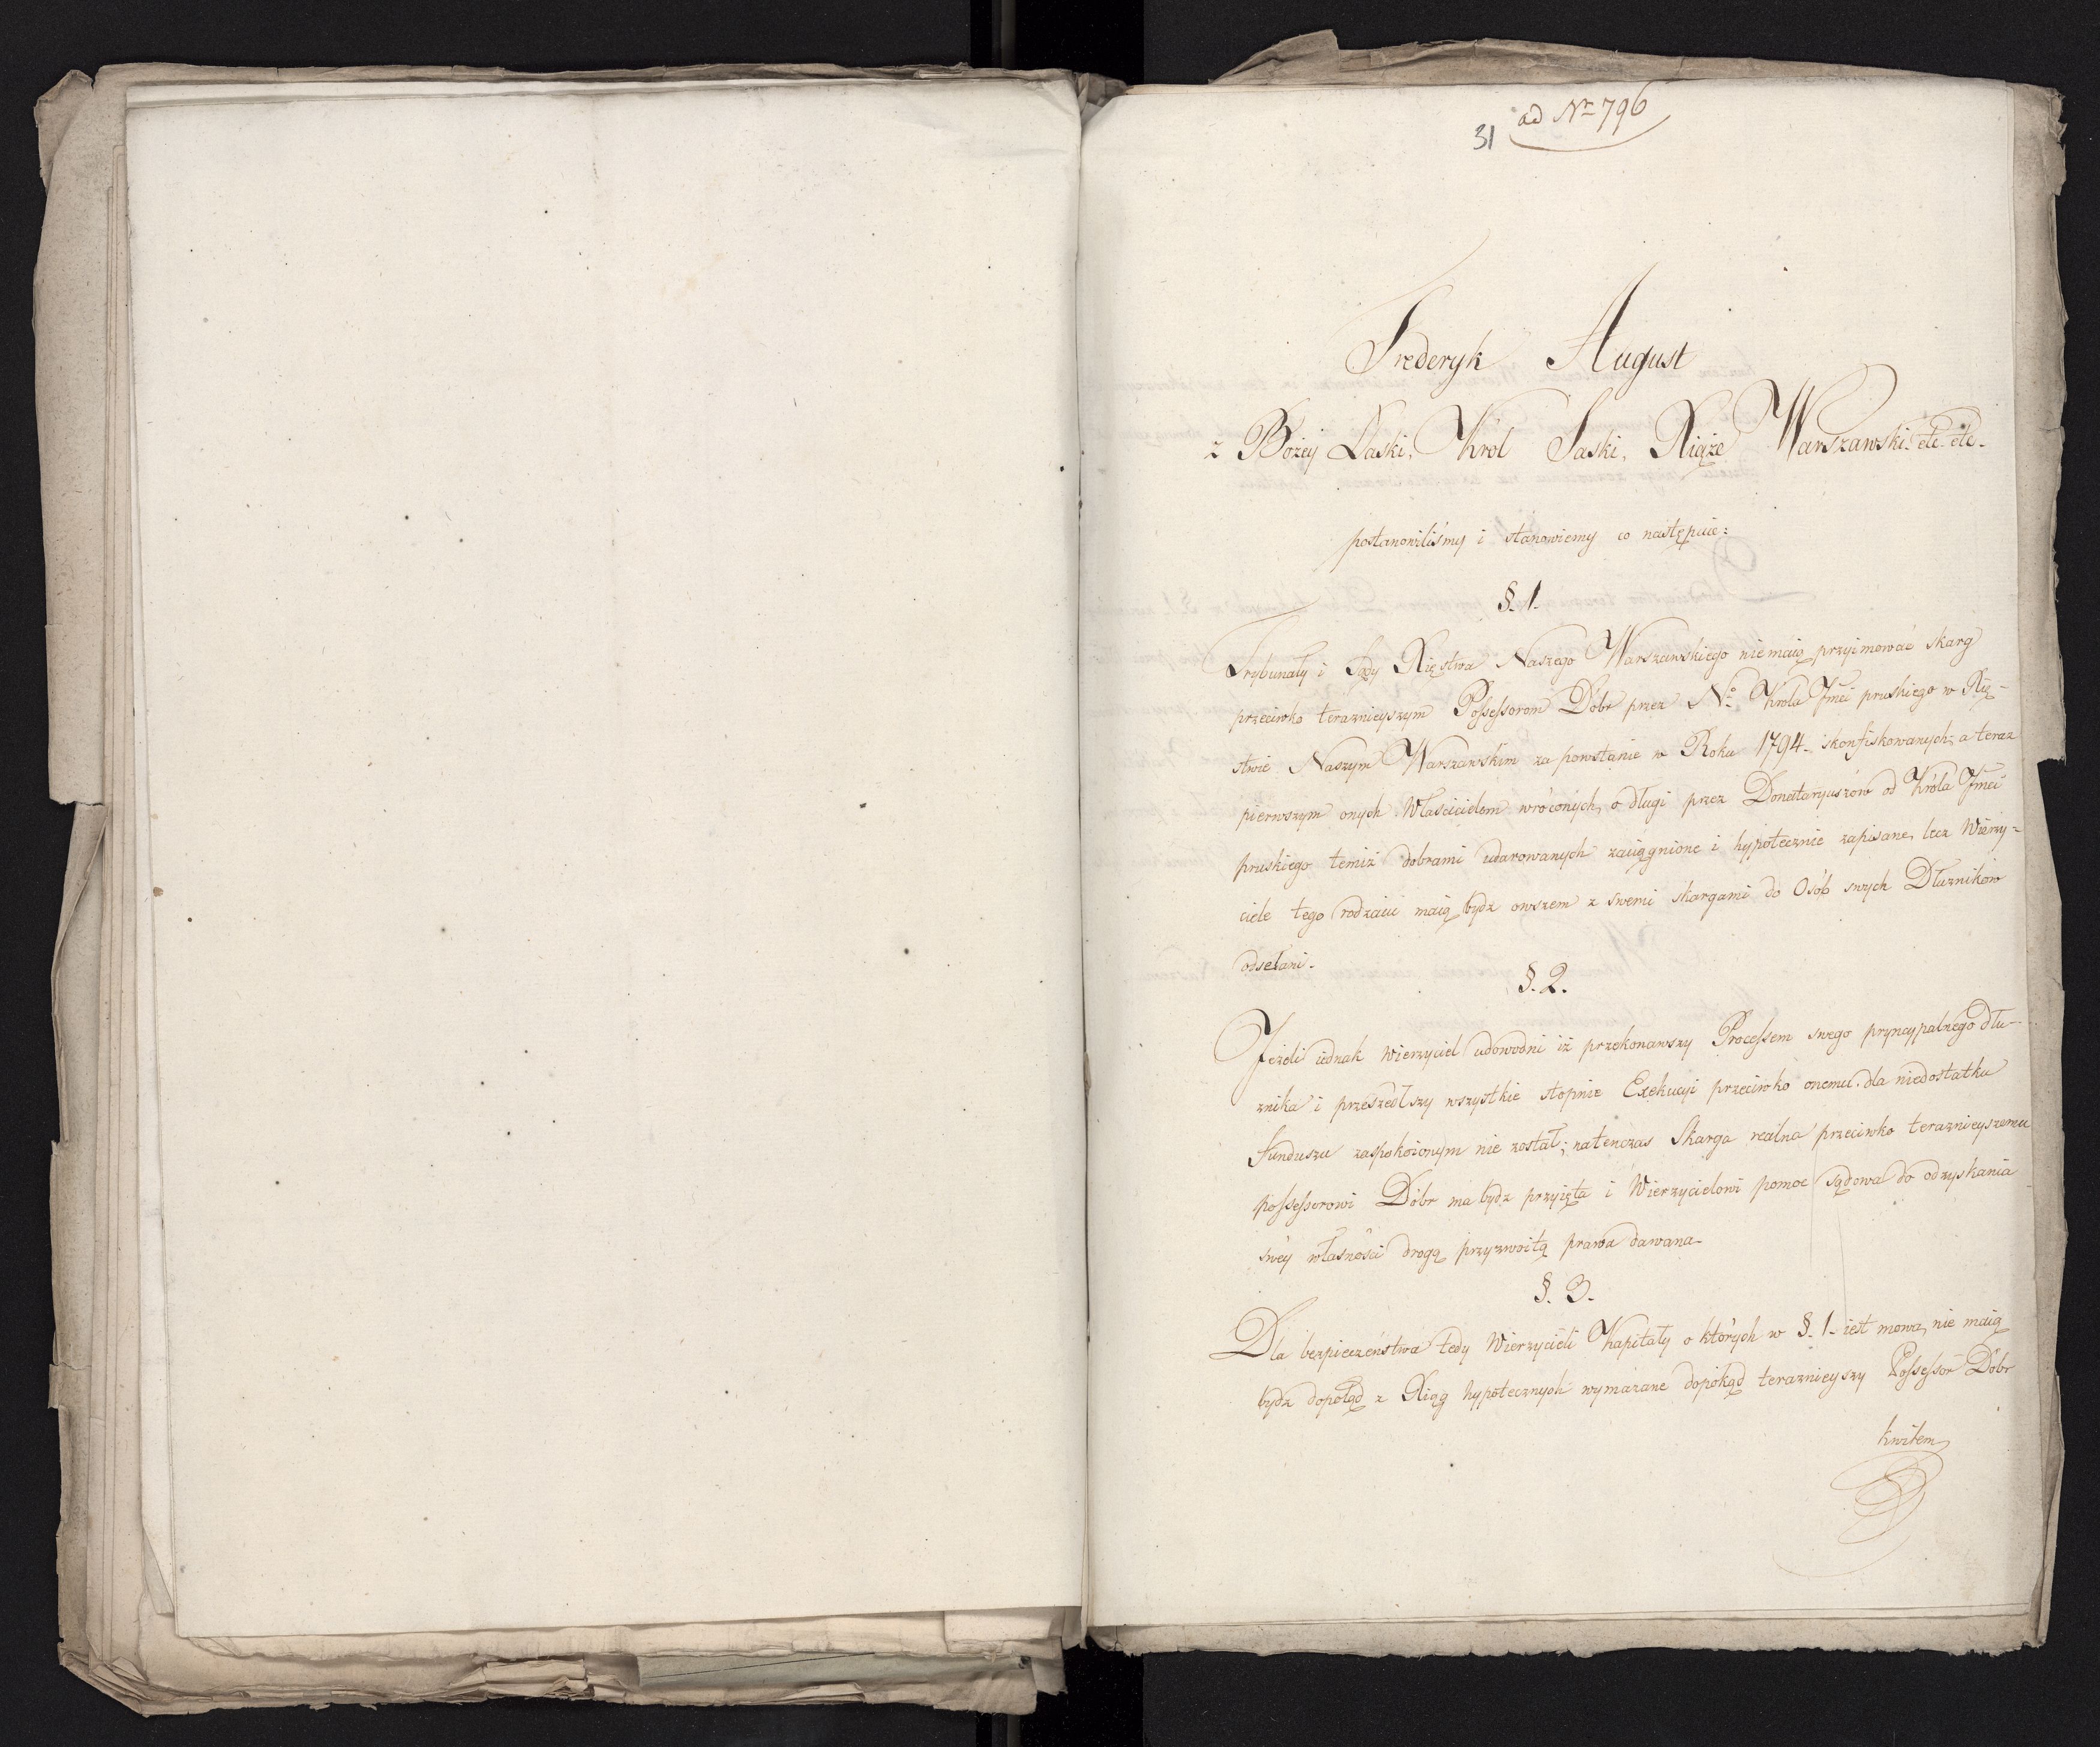 ad Nr 796
31
Fryderyk August
z Bożey Łaski, Król Saski, Xiąże Warszawski etc etc
postanowiliśmy i stanowiemy co następuie:
§. 1.
Trybunały i Sądy Xięstwa Naszego Warszawskiego nie maią przyimować skarg
przeciwko teraznieyszym Possessorom Dóbr przez N. Króla Jmći pruskiego w Xię-
stwie Naszym Warszawskim za powstanie w Roku 1794 skonfiskowanych, a teraz
pierwszym onych Właścicielom wróconych, o długi przez Donataryuszów od Króla Jmći
pruskiego temiż dobrami udarowanych zaciągnione i hypotecznie zapisane, lecz Wierzy-
ciele tego rodzaiu maią bydz owszem z swemi skargami do Osób swych Dłużników
odsełani.
§. 2.
Jeżeli iednak Wierzyciel udowodni iż przekonawszy Processem swego pryncypalnego dłu-
żnika i przeszedłszy wszystkie stopnie Exekucyi przeciwko onemu, dla niedostatku
Funduszu zaspokoionym nie został; natenczas Skarga realna przeciwko teraznieyszemu
possessorowi Dóbr ma bydz przyięta i Wierzycielowi pomoc sądowa do odzyskania
swéy własności drogą przyzwoitą prawa dawana.
§. 3.
Dla bezpieczeństwa tedy Wierzycieli Kapitały o których w §. 1. iest mowa, nie maią
bydz dopotąd z Xiąg hypotecznych wymazane dopokąd teraznieyszy Possessor Dóbr
kwitem